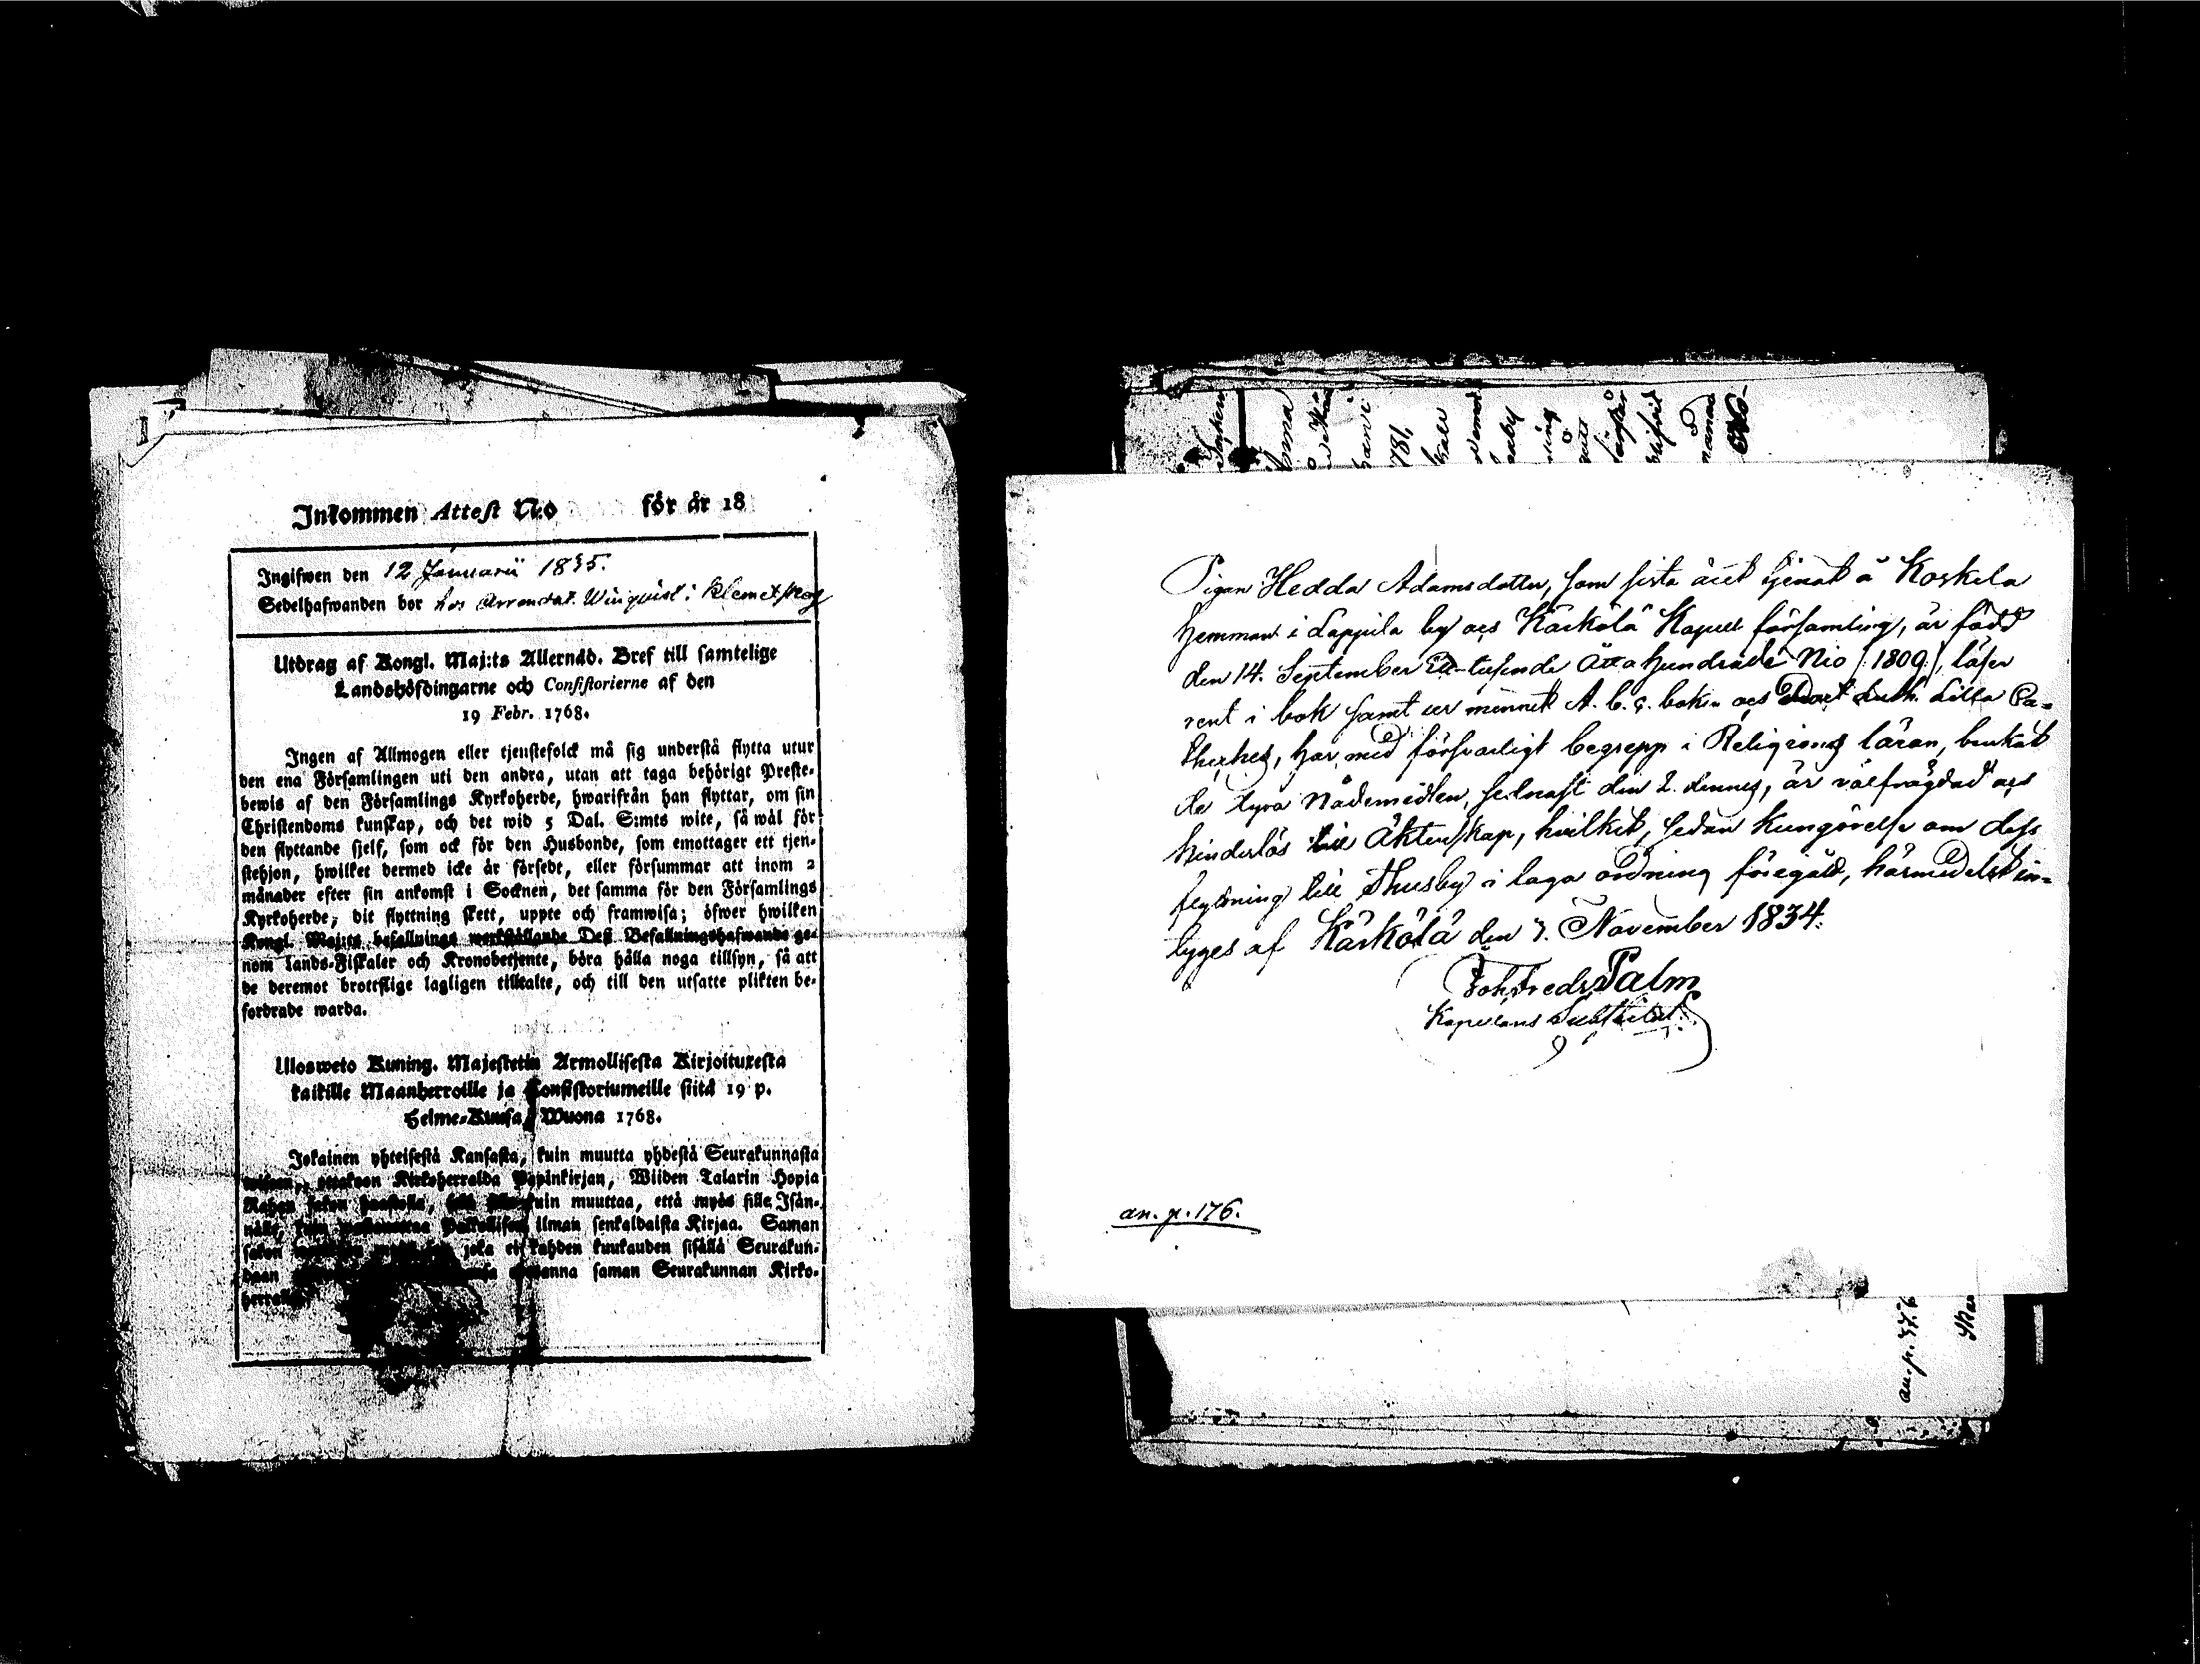 Inkommen Attest No för år 18
Ingifwen den 12 Januarii 1835.
Sedelhafwanden bor hos Arrendat. Winqvist i Klemetskog
Utdrag af Kongl. Maj:ts Allernåd. Bref till samtelige
Landshöfdingarne och Consistorierne af den
19 Febr. 1768.
Ingen af Allmogen eller tjenstefolck må sig understå flytta utur
den ena Församlingen uti den andra, utan att taga behörigt Preste-
bewis af den Församlings Kyrkoherde, hwarifrån han flyttar, om sin
Christendoms kunskap, och det wid 5 Dal. S:mts wite, så wäl för
den flyttande sjelf, som ock för den Husbonde, som emottager ett tjen-
stehjon, hwilket dermed icke är försedt, eller försummar att inom 2
månader efter sin ankomst i Socknen, det samma för den Församlings
Kyrkoherde, dit flyttning skett, uppte och framwisa; öfwer hwilken
Kongl. Maj:ts befallnings werkställande Deß Befallningshafwande ge-
nom Lands-Fiskaler och Kronobetjente, böra hålla noga tillsyn, så att
de deremot brottslige lagligen tilltalte, och till den utsatte plikten be-
fordrade warda.
Ulosweto Kuning. Majestetin Armollisesta Kirjoituxesta
kaikille Maanherroille ja Consistoriumeille siitä 19 p.
Helme-Kuusa Wuona 1768.
Jokainen yhteisestä Kansasta, kuin muutta yhdestä Seurakunnasta
Kirkoherralda Papinkirjan, Wiiden Talarin Hopia
kuin muuttaa, että myös sille Isän-
ilman senkaldaista Kirjaa. Saman
joka ei kahden kuukauden sisällä Seurakun-
daan saman Seurakunnan Kirko-
Pigan Hedda Adamsdotter, som sista året tjenat å Koskela
hemman i Lappila by och Kärkölä Kapell församling, är född
den 14. September Ett-tusende Åtta hundrade Nio /:1809:/, läser
rent i bok samt ur minnet A.b.c. boken och Doct Luth. Lilla Ca-
theches, har med försvarligt begrepp i Religions läran, brukat
de dyra Nådemedlen, sednast den 2. dennes, är välfrägdad och
hinderlös till Äktenskap, hvilket, sedan kungörelse om dess
flyttning till Thusby i laga ordning föregått, härmedelst in-
tyges af Kärkölä den 7. November 1834.
Joh. Fredr. Palm
Kapellans Substitut.
an. p. 176.